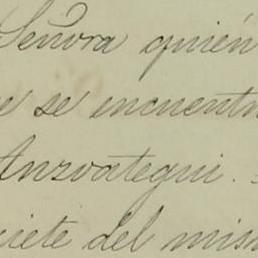 Señora quién
e se encuentr
Anzoategui.
iete del mism